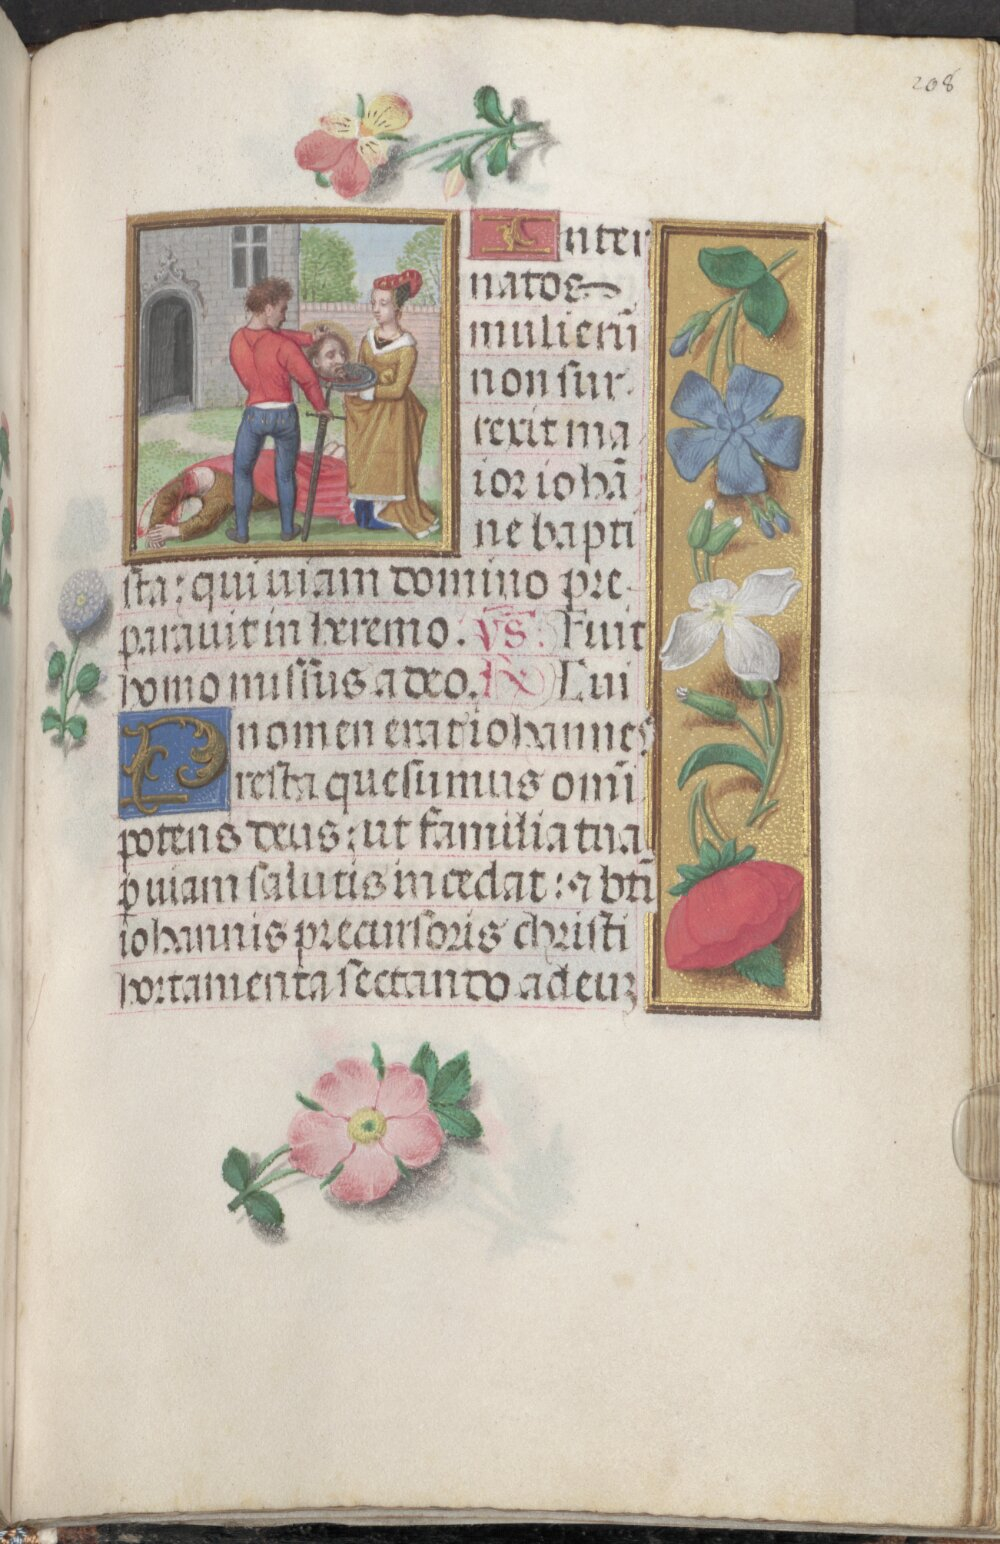 208
Inter
natos
mulierū
non sur
rexit ma
ior iohā
ne bapti
sta: qui uiam domino pre
parauit in heremo. Vs̄. Fuit
homo missus a deo. R Cui
nomen erat iohannes
Presta quesumus omī
potens deus: ut familia tua
p̱ uiam salutis incedat: ⁊ btī
iohannis precursoris christi
hortamenta sectando ad eūꝫ